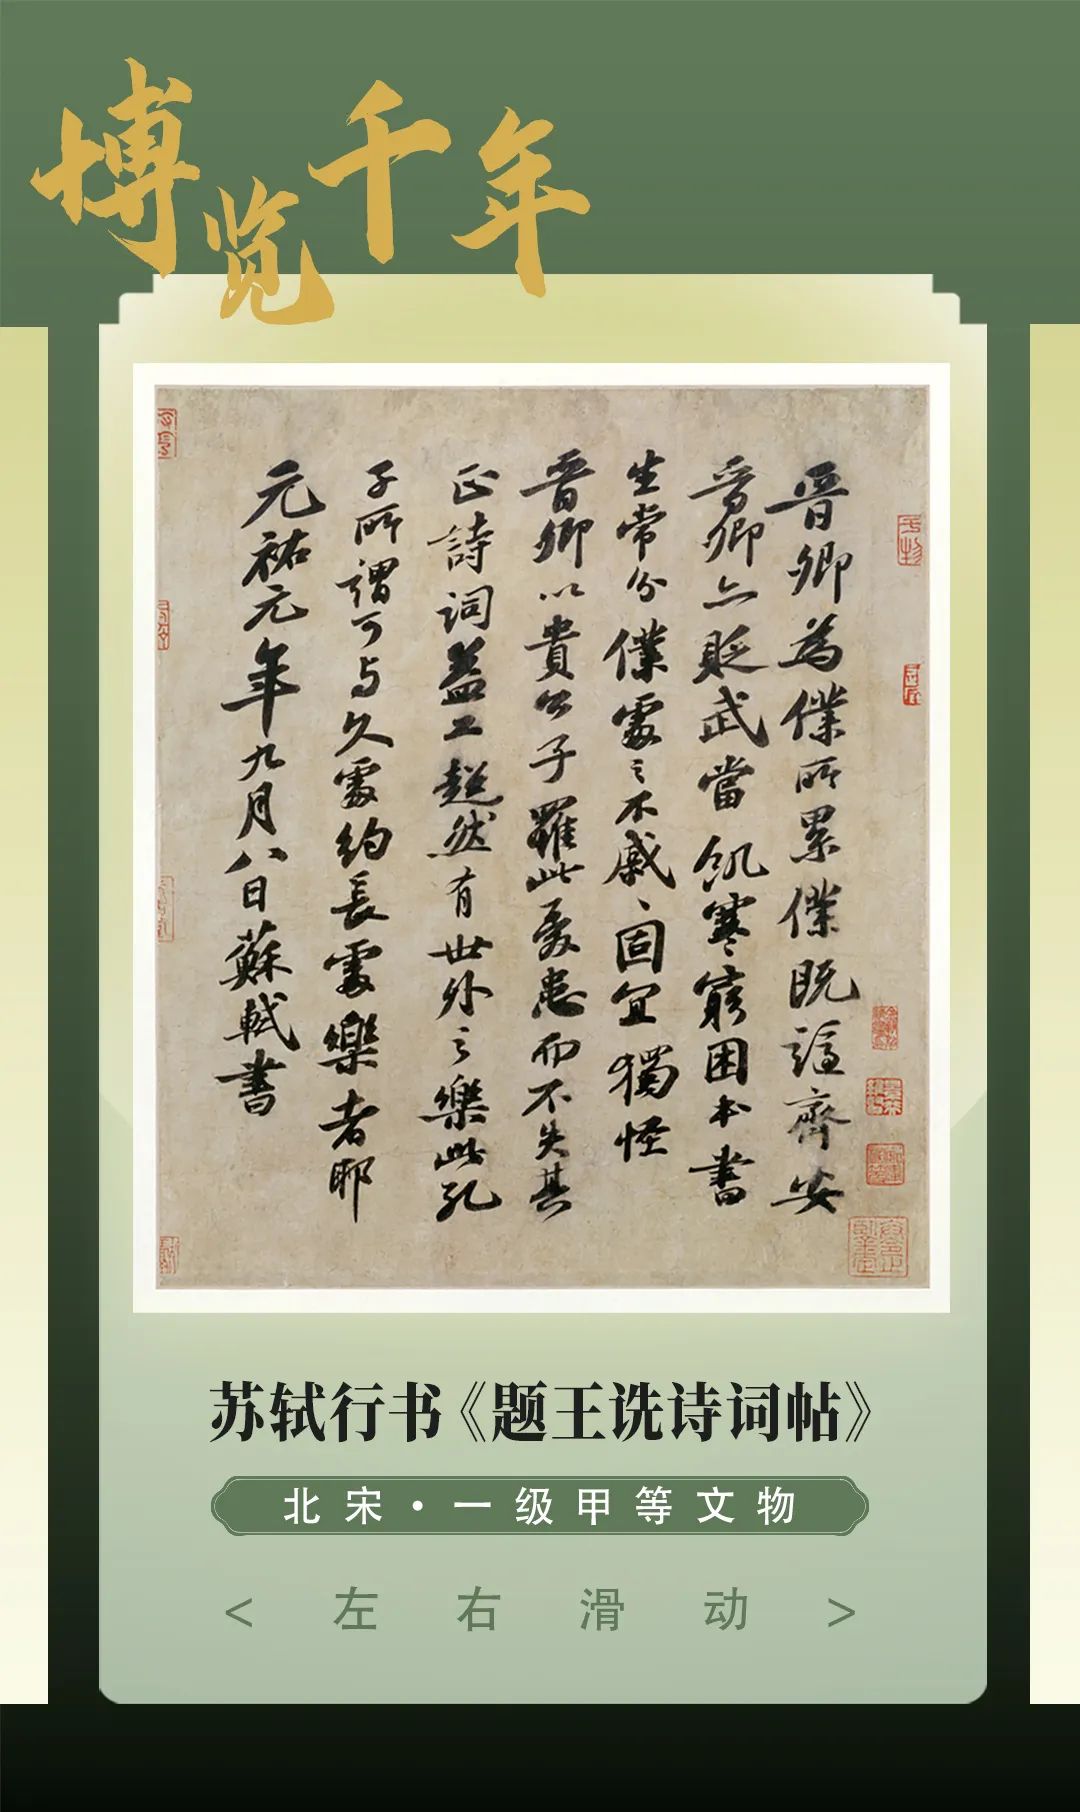 博览千年
晉卿為僕所累僕既謫齊安
晉卿亦貶武當飢寒窮困本書
生常分僕處之不戚戚固宜獨怪
晉卿以貴公子罹此憂患而不失其
正詩詞益工超然有世外之樂此孔
子所謂可与久處約長處樂者耶
元祐元年九月八日蘇軾書
苏轼行书《题王诜诗词帖》
北宋·一级甲等文物
< 左右滑动 >